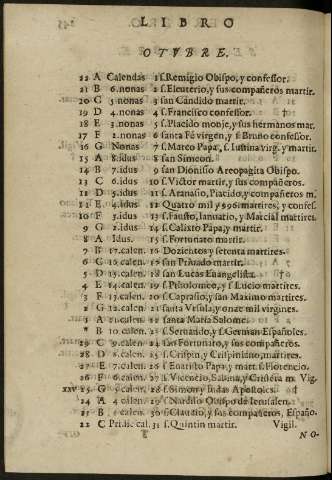 LIBRO
OTVBRE.
22 A Calendas 1 s. Remigio Obispo, y confessor.
21 B 6. nonas 2 s. Eleuterio, y sus compañeros martir.
20 C 5 nonas 3 san Cándido martir.
19 D 4. nonas 4 s. Francisco confessor. †
18 E 3. nonas 5 s. Placido monje, y sus hermanos mar.
17 F 2. nonas 6 santa Fé virgen, y s. Bruno confessor.
16 G Nonas 7 s. Marco Papa, s. Iustina virg. y martir.
15 A 8. idus 8 san Simeon.
14 B 7. idus 9 san Dionisio Areopagita Obispo.
13 C 6. idus 10 s. Victor martir, y sus compañeros.
12 D 5. idus 11 s. Atanasio, Placido, y compañeros m.
11 E 4. idus 12 Quatro mil y 996. martires, y confes.
10 F 3. idus 13 s. Fausto, Ianuario, y Marcial martires
9 G 2. idus 14 s. Calixto Papa, y martir.
8 A Idus. 15 s. Fortunato martir.
7 B 17. calen. 16 Dozientos y setenta martires.
6 C 16. calen. 17 san Priuado martir.
5 D 15. calen. 18 san Lucas Euangelista. †
4 E 14. calen. 19 s. Ptisolomeo, y s. Lucio martires.
3 F 13. calen. 20 s. Caprasio, y san Maximo martires.
2 G 12. calen. 21 santa Vrsula, y onze mil virgines.
1 A 11. calen. 22 santa Maria Salome.
* B 10. calen. 23 s. Seruando, y s. German Españoles.
29 C 9. calen. 24 san Fortunato, y sus compañeros.
28 D 8. calen. 25 s. Crispin, y Crispiniano, martires.
27 E 7. calen. 26 s. Euaristo Papa y mart. s. Florencio.
26 F 6. calen. 27 s. Vicencio, Sabina, y Cristera m. Vig.
XXV 25 G 5. calen. 28 s. Simon y Iudas Apostoles. †
24 A 4. calen. 29 Narciso Obispo de Ierusalen.
23 B 3. calen. 30 s. Claudio, y sus compañeros, Españo.
22 C Prid. cal. 31 s. Quintin martir. Vigil.
NO-